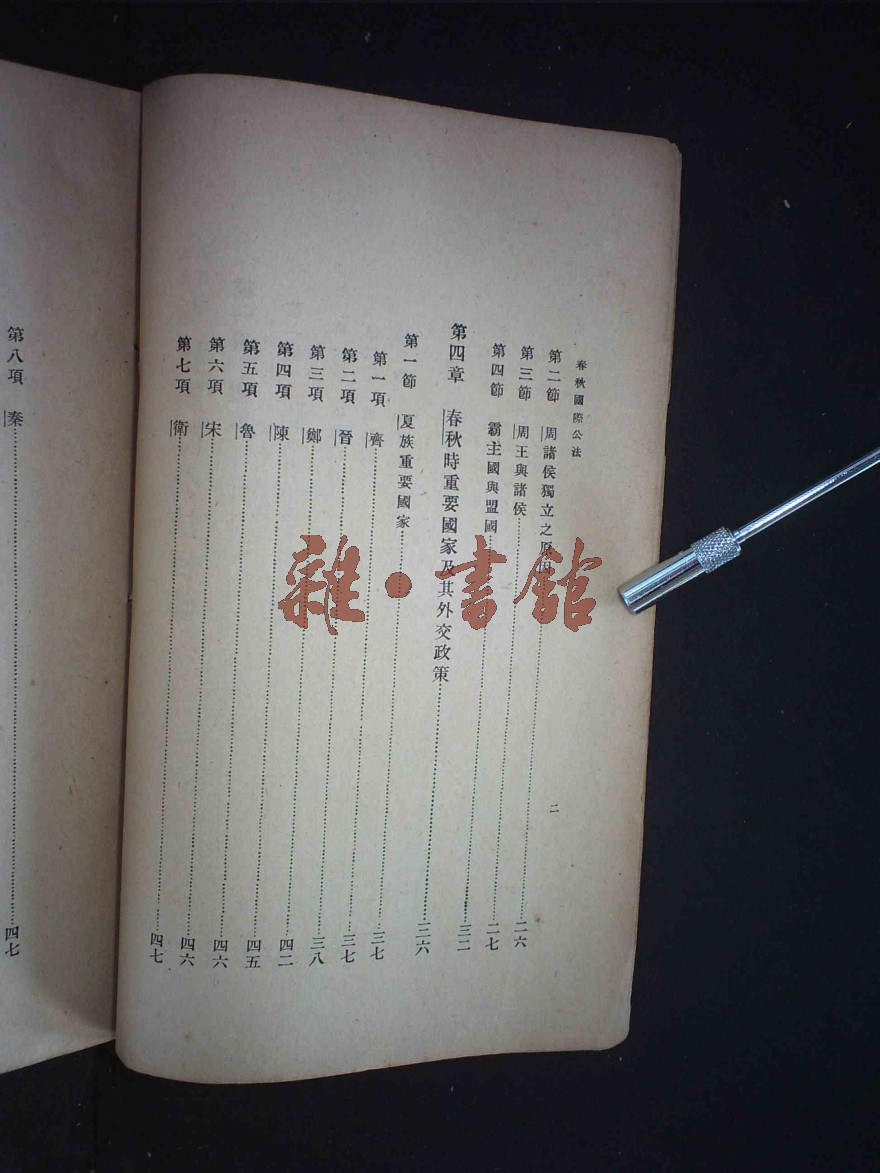 春秋國際公法
二
第二節 周諸侯獨立之原因……二六
第三節 周王與諸侯……二七
第四節 霸主國與盟國……三二
第四章 春秋時重要國家及其外交政策……三六
第一節 夏族重要國家……三七
第一項 齊……三七
第二項 晉……三八
第三項 鄭……四二
第四項 陳……四五
第五項 魯……四六
第六項 宋……四六
第七項 衛……四七
第八項 秦……四七
雜·書館